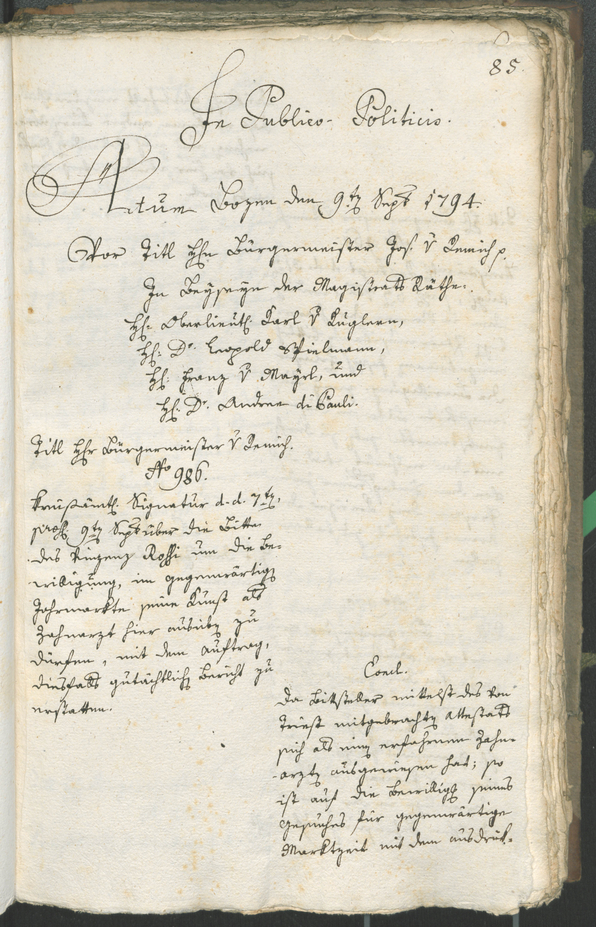 85.
In Publico-Politicis.
Actum Bozen den 9ten Sept 1794.
Vor Titl Hhn Bürgermeister Jos. v Remich p.
In Beyseyn der Magistrats Räthe.
Hh: Oberlieut: Karl v Kuglern,
Hh: Dr. Leopold Spielmann,
Hh: Franz v Mayrl, und
Hh: Dr. Andree di Pauli.
Titl Hhr Bürgermeister v Remich.
No 986.
Kreisämtl. Signatur d. d. 7ten,
9ten Sept über die Bitte
des Vinzenz Rossi um die Be-
willigung, im gegenwärtigen
Jahrmarkte seine Kunst als
Zahnarzt hier ausüben zu
dürfen, mit dem Auftrag,
diesfalls gutächtlichen Bericht zu
erstatten.
Concl.
Da Bittsteller mittelst des von
Triest mitgebrachten Attestats
sich als einen erfahrnen Zahn-
arzten ausgewiesen hat; so
ist auf die Bewilligung seines
Gesuches für gegenwärtige
Marktzeit mit dem ausdrük-